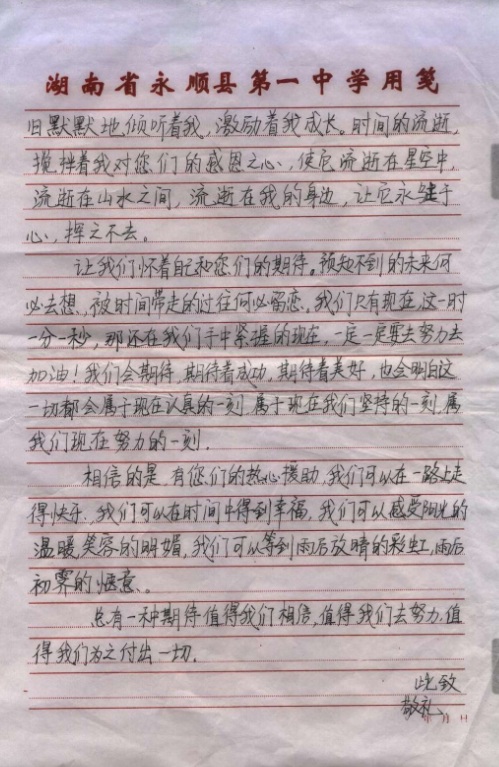 湖南省永顺县第一中学用笺
旧默默地倾听着我，激励着我成长。时间的流逝，
搅拌着我对您们的感恩之心，使它流逝在星空中，
流逝在山水之间，流逝在我的身边，让它永驻于
心，挥之不去。
让我们怀着自己和您们的期待。预知不到的未来何
必去想，被时间带走的过往何必留恋，我们只有现在，这一时
一分一秒，那还在我们手中紧握的现在，一定一定要去努力去
加油！我们会期待，期待着成功，期待着美好，也会明白这
一切都会属于现在认真的一刻，属于现在我们坚持的一刻，属
我们现在努力的一刻．
相信的是，有您们的热心援助，我们可以在一路上走
得快乐，我们可以在时间中得到幸福，我们可以感受阳光的
温暖，笑容的明媚，我们可以等到雨后放晴的彩虹，雨后
初霁的惬意。
总有一种期待值得我们相信，值得我们去努力，值
得我们为之付出一切．
此致
敬礼
年 月 日